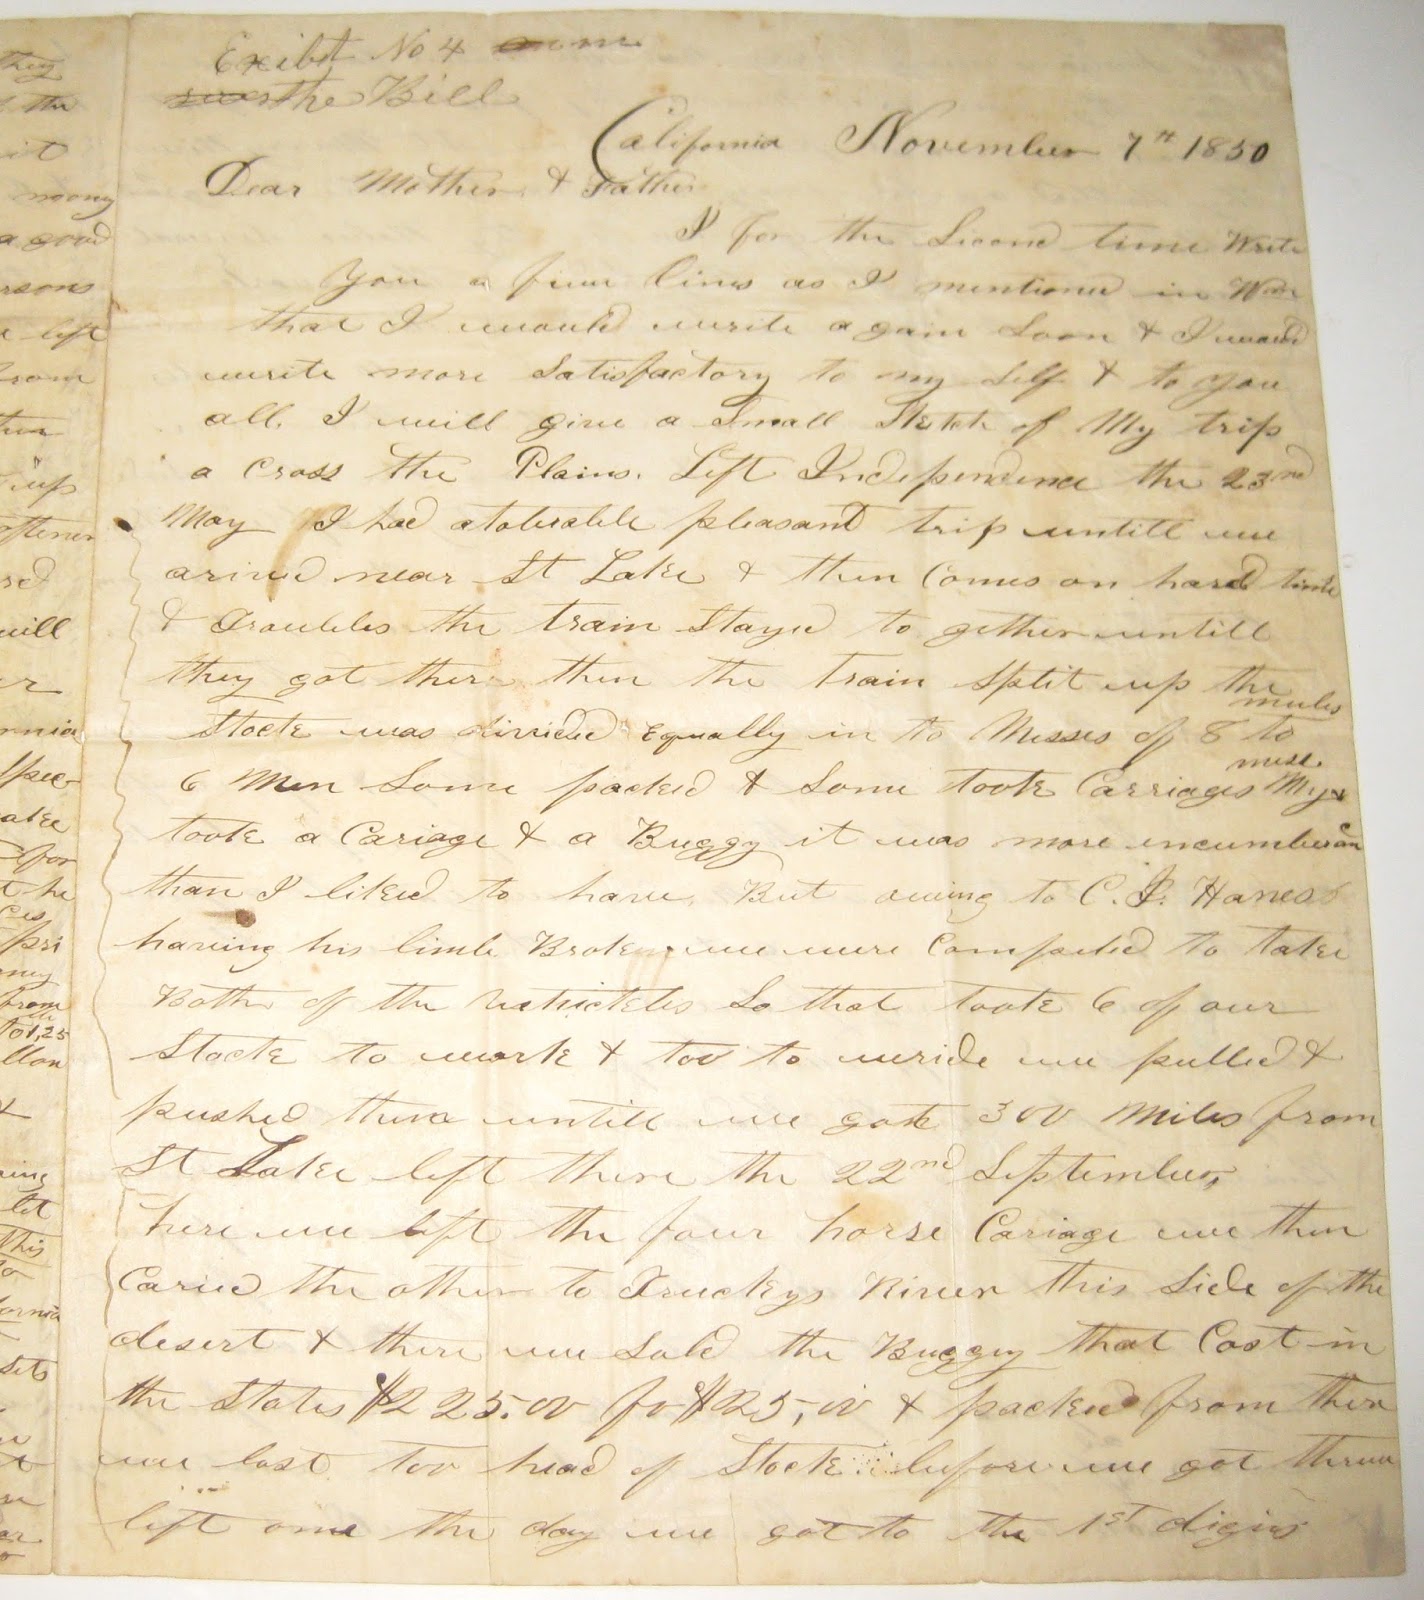 they
the
it
moony
a good
rsons
left
from
then
up
oftener
sed
will
er
rnia
spec-
ake
for
he
ces
pri
ney
from
to 1,25
llon
&
ing
let
this
to
fornia
sets
Exibit No 4
the Bill
California November 7th 1850
Dear Mother & Father
I for the Second time Write
You a few lines as I mentioned in
that I would write again Soon & I would
write more Satisfactory to my Self & to you
all. I will give a Small Sketch of My trip
a Cross the Plains. Left Independence the 23nd
May I had atolerable pleasant trip untill we
arived near St Lake & then Comes on hard time
& Troubles the train Stayed to gether untill
they got there then the train Split up the
mules
Stock was divided Equally in to Messes of 8 to
6 Men Some packed & Some took Carriages My
mess
took a Cariage & a Buggy it was more encumberan
than I liked to have. But owing to C. J. Hanes
having his limb Broken we were Compeled to take
Both of the vehickles So that took 6 of our
Stock to work & too to wride we pulled &
pushed there untill we got 300 Miles from
St Lake left there the 22nd September,
here we left the four horse Cariage we then
Caried the other to Truckys River this Side of the
desert & there we Sold the Buggy that Cost in
the States $225.00 for $25,00 & packed from there
we lost too head of Stock before we got threw
left one the day we got to the 1st digins